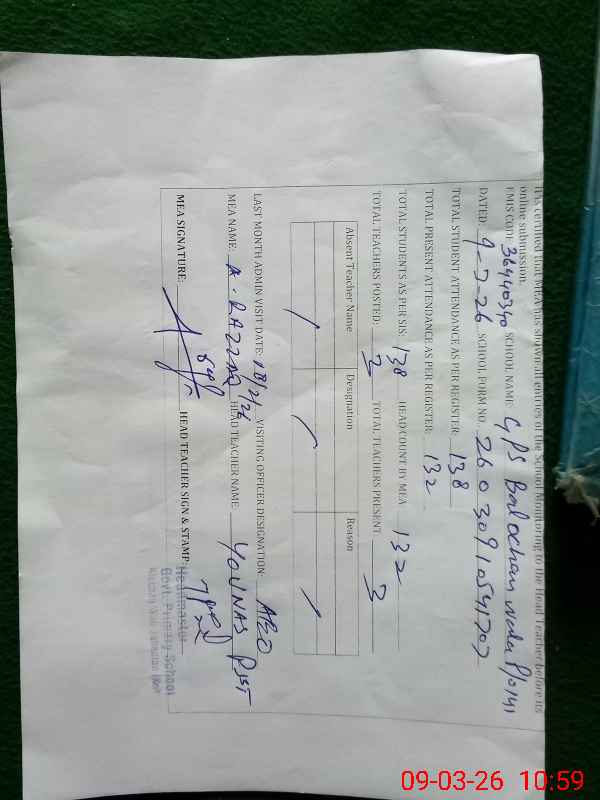 It is certified that MEA has shown all entries of the School Monitoring to the Head Teacher before its
online submission.
EMIS CODE: 36440340 SCHOOL NAME: GPS Balochan wala P/0141
DATED: 9-3-26 SCHOOL FORM NO. 26030910541707
TOTAL STUDENT ATTENDANCE AS PER REGISTER: 138
TOTAL PRESENT ATTENDANCE AS PER REGISTER: 132
TOTAL STUDENTS AS PER SIS: 138 HEAD COUNT BY MEA 132
TOTAL TEACHERS POSTED: 3 TOTAL TEACHERS PRESENT: 3
Absent Teacher Name Designation Reason
LAST MONTH ADMIN VISIT DATE: 18/2/26 VISITING OFFICER DESIGNATION: AEO
MEA NAME: A. RAZZAQ HEAD TEACHER NAME: YOUNAS PST
MEA SIGNATURE: HEAD TEACHER SIGN & STAMP:
Headmaster
Govt. Primary School
09-03-26 10:59